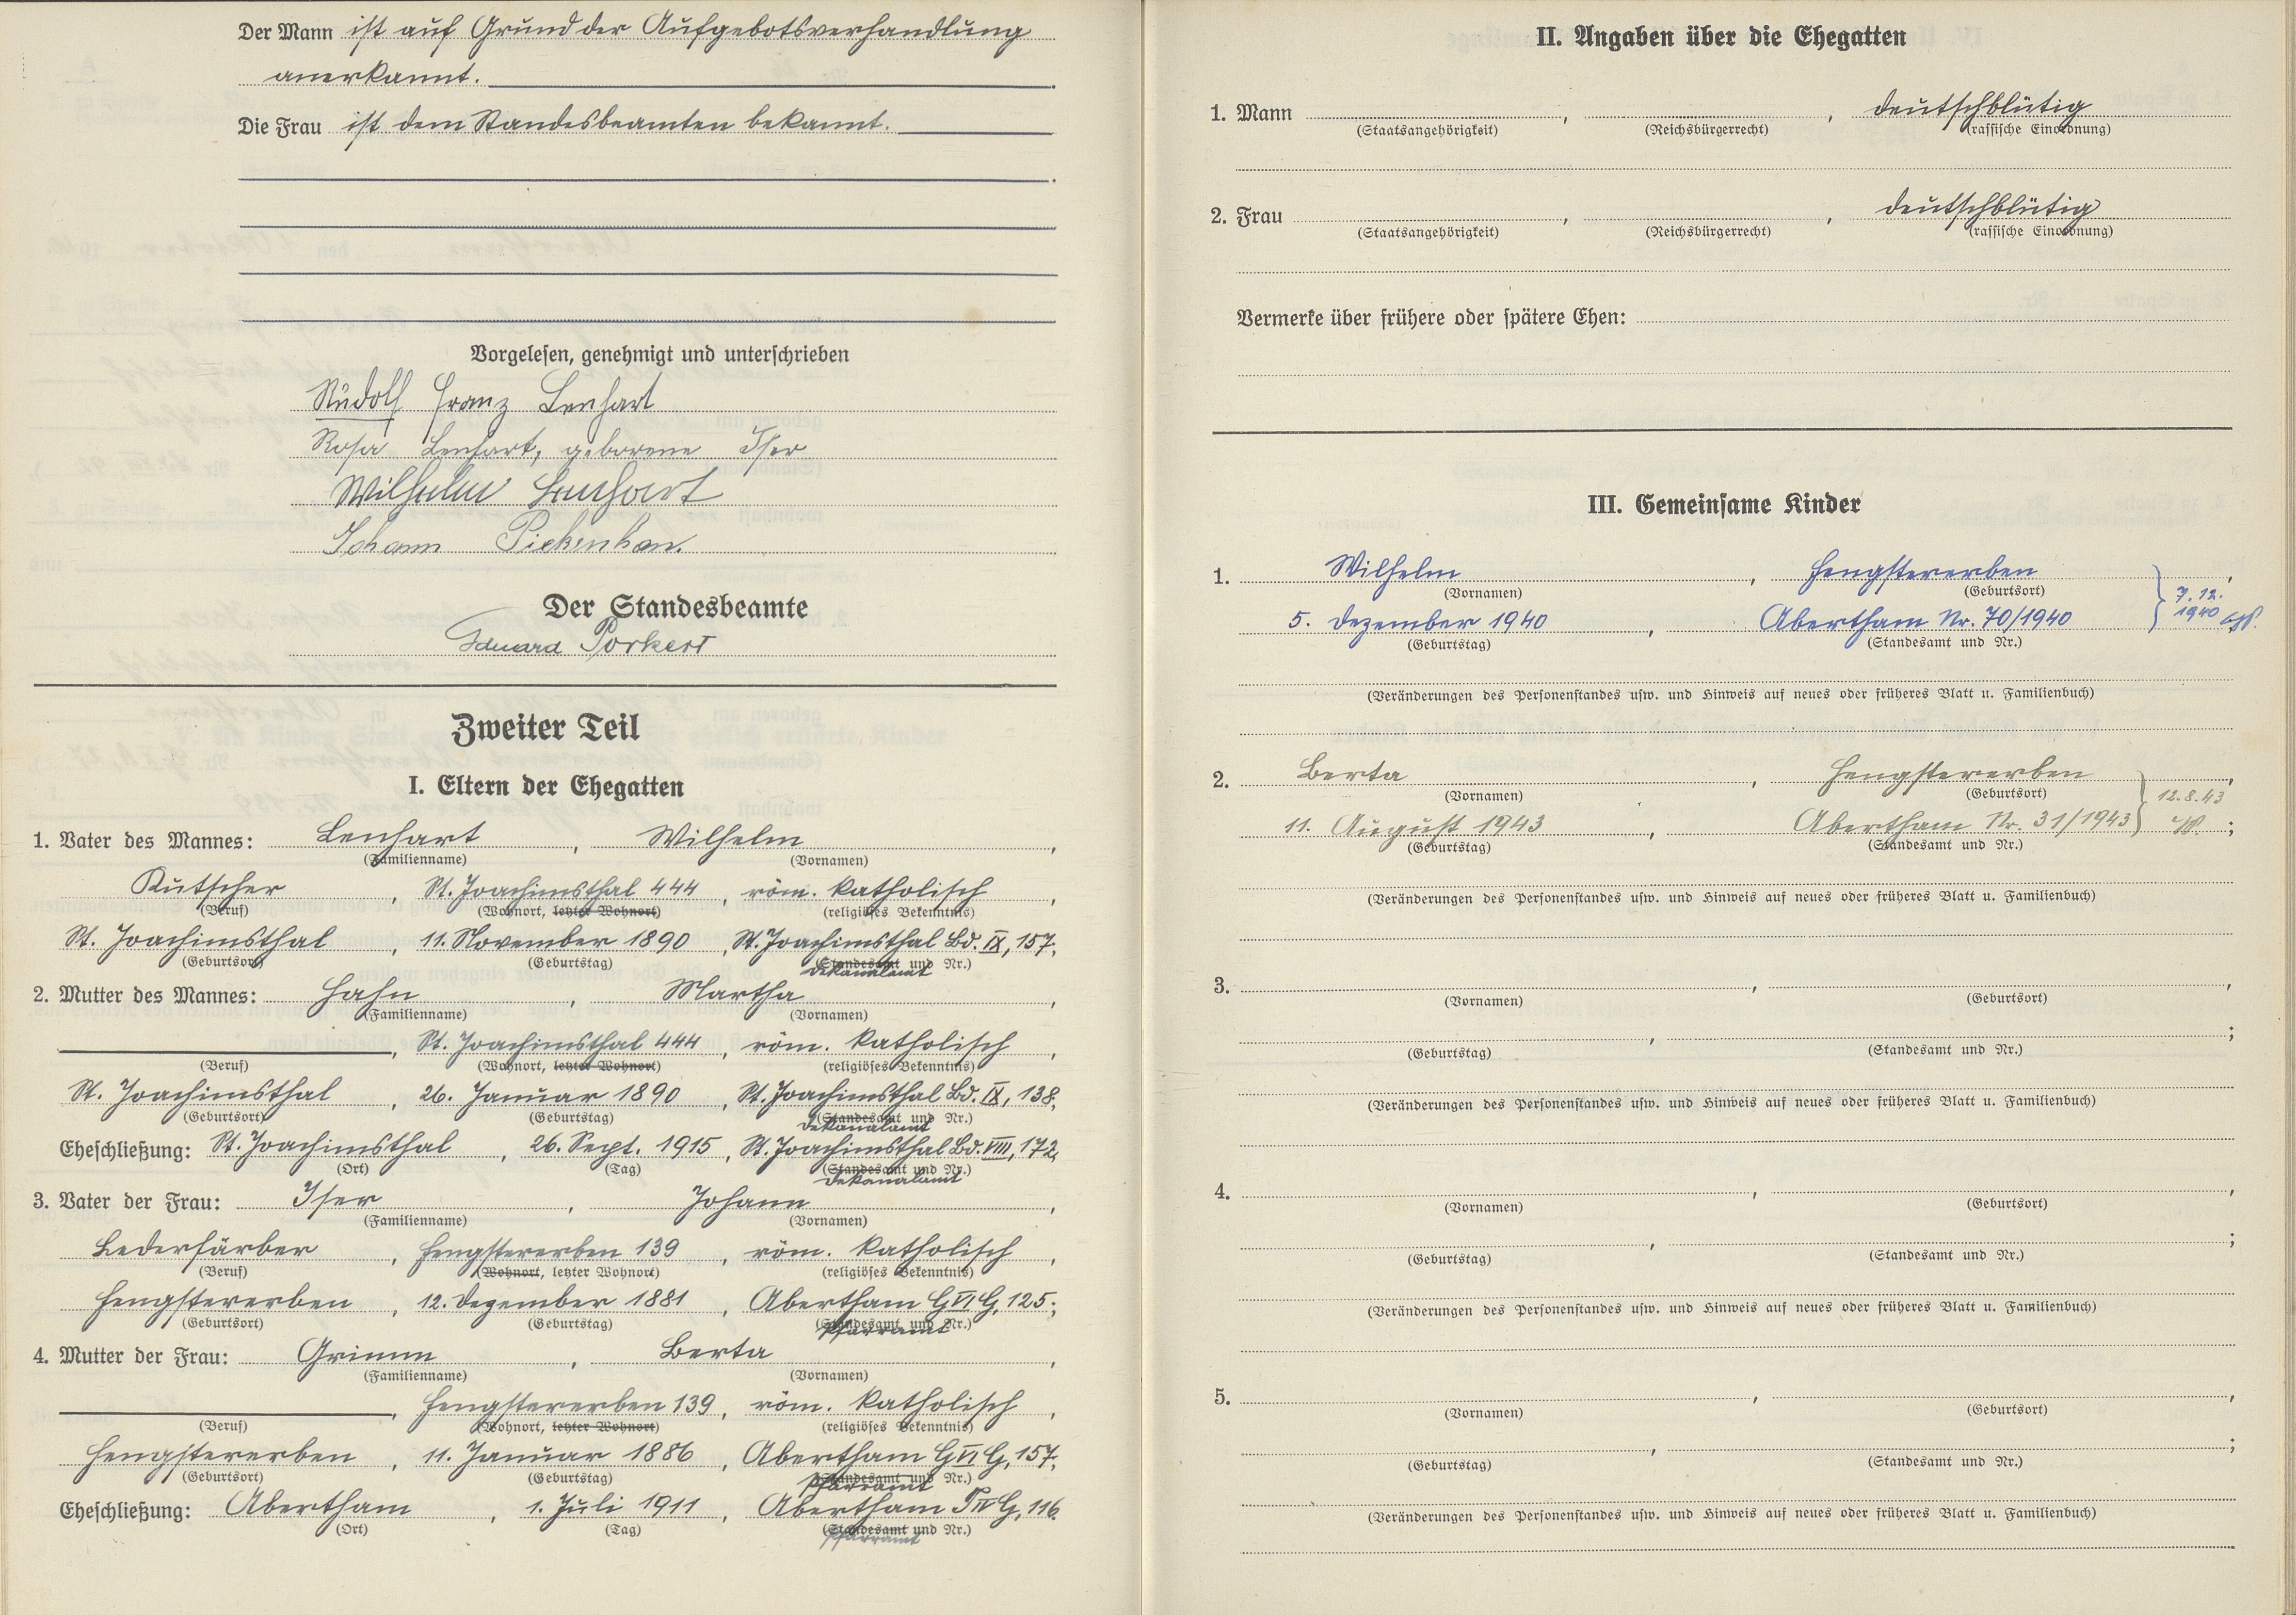 Der Mann ist auf Grund der Aufgebotsverhandlung
anerkannt.
Die Frau ist dem Standesbeamten bekannt.
Vorgelesen, genehmigt und unterschrieben
Rudolf Franz Lenhart
Rosa Lenhart, geborene Iser
Wilhelm Lenhart
Johann Pickenhan.
Der Standesbeamte
Eduard Porkert
Zweiter Teil
I. Eltern der Ehegatten
1. Vater des Mannes: Lenhart, Wilhelm,
(Familienname) (Vornamen)
Kutscher, St. Joachimsthal 444, röm. katholisch,
(Beruf) (Wohnort, letzter Wohnort) (religiöses Bekenntnis)
St. Joachimsthal, 11. November 1890, St. Joachimsthal Bd. IX, 157;
(Geburtsort) (Geburtstag) (Standesamt und Nr.)
Dekanalamt
2. Mutter des Mannes: Hahn, Martha,
(Familienname) (Vornamen)
, St. Joachimsthal 444, röm. katholisch,
(Beruf) (Wohnort, letzter Wohnort) (religiöses Bekenntnis)
St. Joachimsthal, 26. Januar 1890, St. Joachimsthal Bd. IX, 138.
(Geburtsort) (Geburtstag) (Standesamt und Nr.)
Dekanalamt
Eheschließung: St. Joachimsthal, 26. Sept. 1915, St. Joachimsthal Bd. VIII, 172.
(Ort) (Tag) (Standesamt und Nr.)
Dekanalamt
3. Vater der Frau: Iser, Johann,
(Familienname) (Vornamen)
Lederfärber, Hengstererben 139, röm. katholisch,
(Beruf) (Wohnort, letzter Wohnort) (religiöses Bekenntnis)
Hengstererben, 12. Dezember 1881, Abertham G VI G, 125;
(Geburtsort) (Geburtstag) (Standesamt und Nr.)
Pfarramt
4. Mutter der Frau: Grimm, Berta,
(Familienname) (Vornamen)
, Hengstererben 139, röm. katholisch,
(Beruf) (Wohnort, letzter Wohnort) (religiöses Bekenntnis)
Hengstererben, 11. Januar 1886, Abertham G VI G, 157.
(Geburtsort) (Geburtstag) (Standesamt und Nr.)
Pfarramt
Eheschließung: Abertham, 1. Juli 1911, Abertham T IV G, 116.
(Ort) (Tag) (Standesamt und Nr.)
Pfarramt
II. Angaben über die Ehegatten
1. Mann , , deutschblütig
(Staatsangehörigkeit) (Reichsbürgerrecht) (rassische Einordnung)
2. Frau , , deutschblütig
(Staatsangehörigkeit) (Reichsbürgerrecht) (rassische Einordnung)
Vermerke über frühere oder spätere Ehen:
III. Gemeinsame Kinder
1. Wilhelm, Hengstererben,
(Vornamen) (Geburtsort)
7.12.
1940
5. Dezember 1940, Abertham Nr. 70/1940
(Geburtstag) (Standesamt und Nr.)
(Veränderungen des Personenstandes usw. und Hinweis auf neues oder früheres Blatt u. Familienbuch)
2. Berta, Hengstererben,
(Vornamen) (Geburtsort)
12.8.43
11. August 1943, Abertham Nr. 31/1943;
(Geburtstag) (Standesamt und Nr.)
(Veränderungen des Personenstandes usw. und Hinweis auf neues oder früheres Blatt u. Familienbuch)
3. , ,
(Vornamen) (Geburtsort)
, ;
(Geburtstag) (Standesamt und Nr.)
(Veränderungen des Personenstandes usw. und Hinweis auf neues oder früheres Blatt u. Familienbuch)
4. , ,
(Vornamen) (Geburtsort)
, ;
(Geburtstag) (Standesamt und Nr.)
(Veränderungen des Personenstandes usw. und Hinweis auf neues oder früheres Blatt u. Familienbuch)
5. , ,
(Vornamen) (Geburtsort)
, ;
(Geburtstag) (Standesamt und Nr.)
(Veränderungen des Personenstandes usw. und Hinweis auf neues oder früheres Blatt u. Familienbuch)